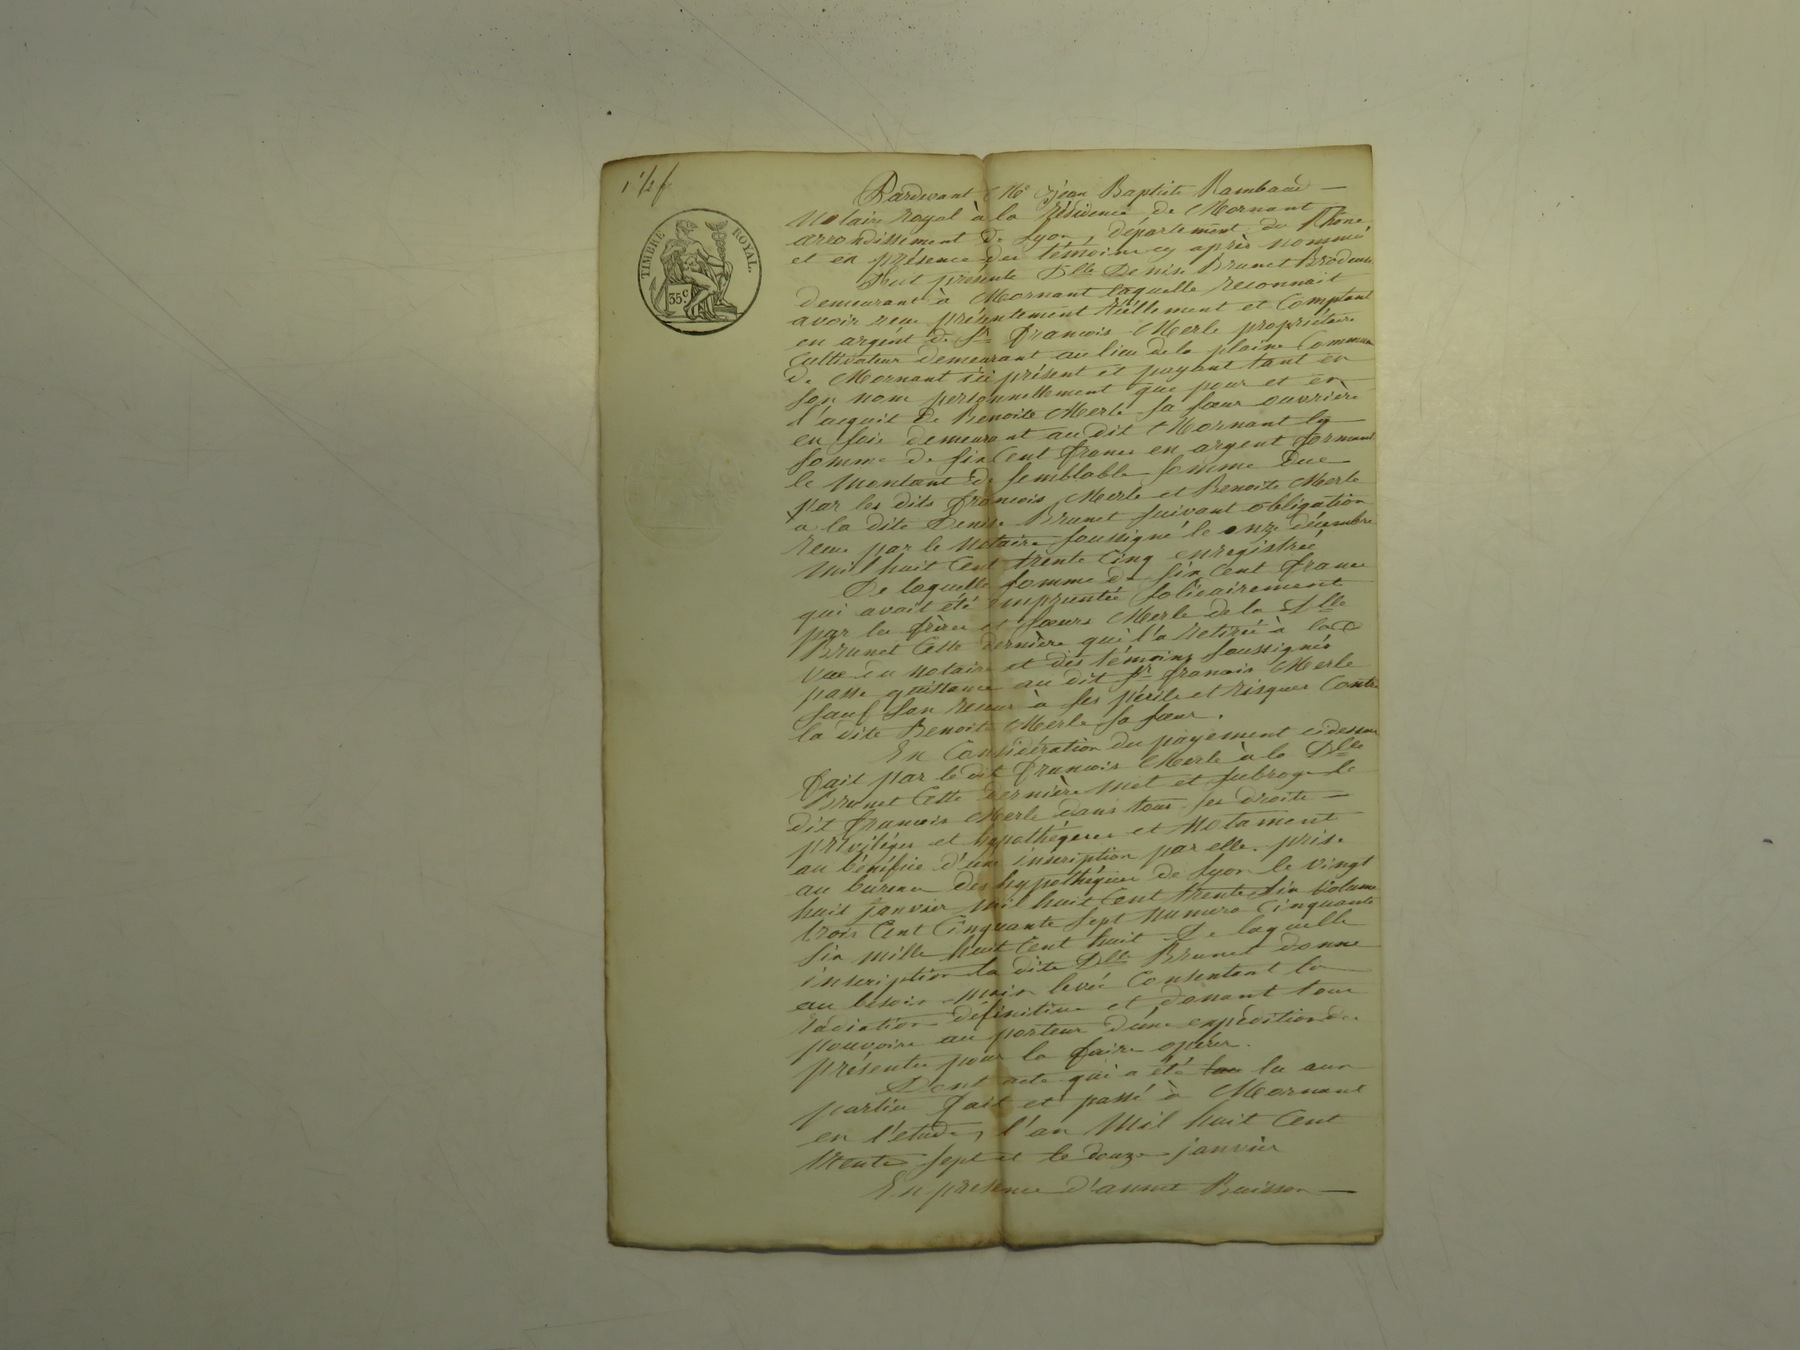 1 1/2 f
TIMBRE ROYAL.
35 c
Pardevant Me Jean Baptiste Rambaud
Notaire royal à la résidence de Mornant
arrondissement de Lyon, département du Rhône
et en présence des témoins cy après nommés
Fut présente Dlle Denise Brunet Brodeuse
demeurant à Mornant laquelle reconnait
avoir reçu présentement réellement et Comptant
en argent de Sr François Merle propriétaire
Cultivateur demeurant au lieu de la plaine Commune
de Mornant ici présent et payant tant en
son nom personnellement que pour et en
l'acquit de Benoite Merle sa sœur ouvrière
en soie demeurant au dit Mornant la
somme de six Cent francs en argent formant
le montant de semblable somme due
par les dits François Merle et Benoite Merle
a la dite Denise Brunet suivant obligation
reçue par le Notaire soussigné le onze décembre
mil huit Cent trente Cinq enregistrée
De laquelle somme de six Cent francs
qui avait été empruntée solidairement
par les frères et sœurs Merle de la Dlle
Brunet Cette dernière qui l'a retirée à la
vue du notaire et des témoins soussignés
passe quittance au dit Sr François Merle
sauf son recour à ses périls et risques Contre
la dite Benoite Merle sa sœur.
En Considération du payement cidessus
fait par le dit François Merle à la Dlle
Brunet Cette dernière met et subroge le
dit François Merle dans tous ses droits
privilèges et hypothèques et Notament
au bénéfice d'une inscription par elle prise
au bureau des hypothèques de Lyon le vingt
huit janvier mil huit Cent trente six Volume
trois Cent Cinquante sept numero Cinquante
six mille huit Cent huit De laquelle
inscription la dite Dlle Brunet donne
au besoin main levée Consentant la
radiation définitive et donant tous
pouvoirs au porteur d'une expédition des
présentes pour la faire opérer.
Dont acte qui a été lu aux
parties fait et passé à Mornant
en l'etude, l'an Mil huit Cent
trente sept et le douze janvier
En présence d'anne Buisson